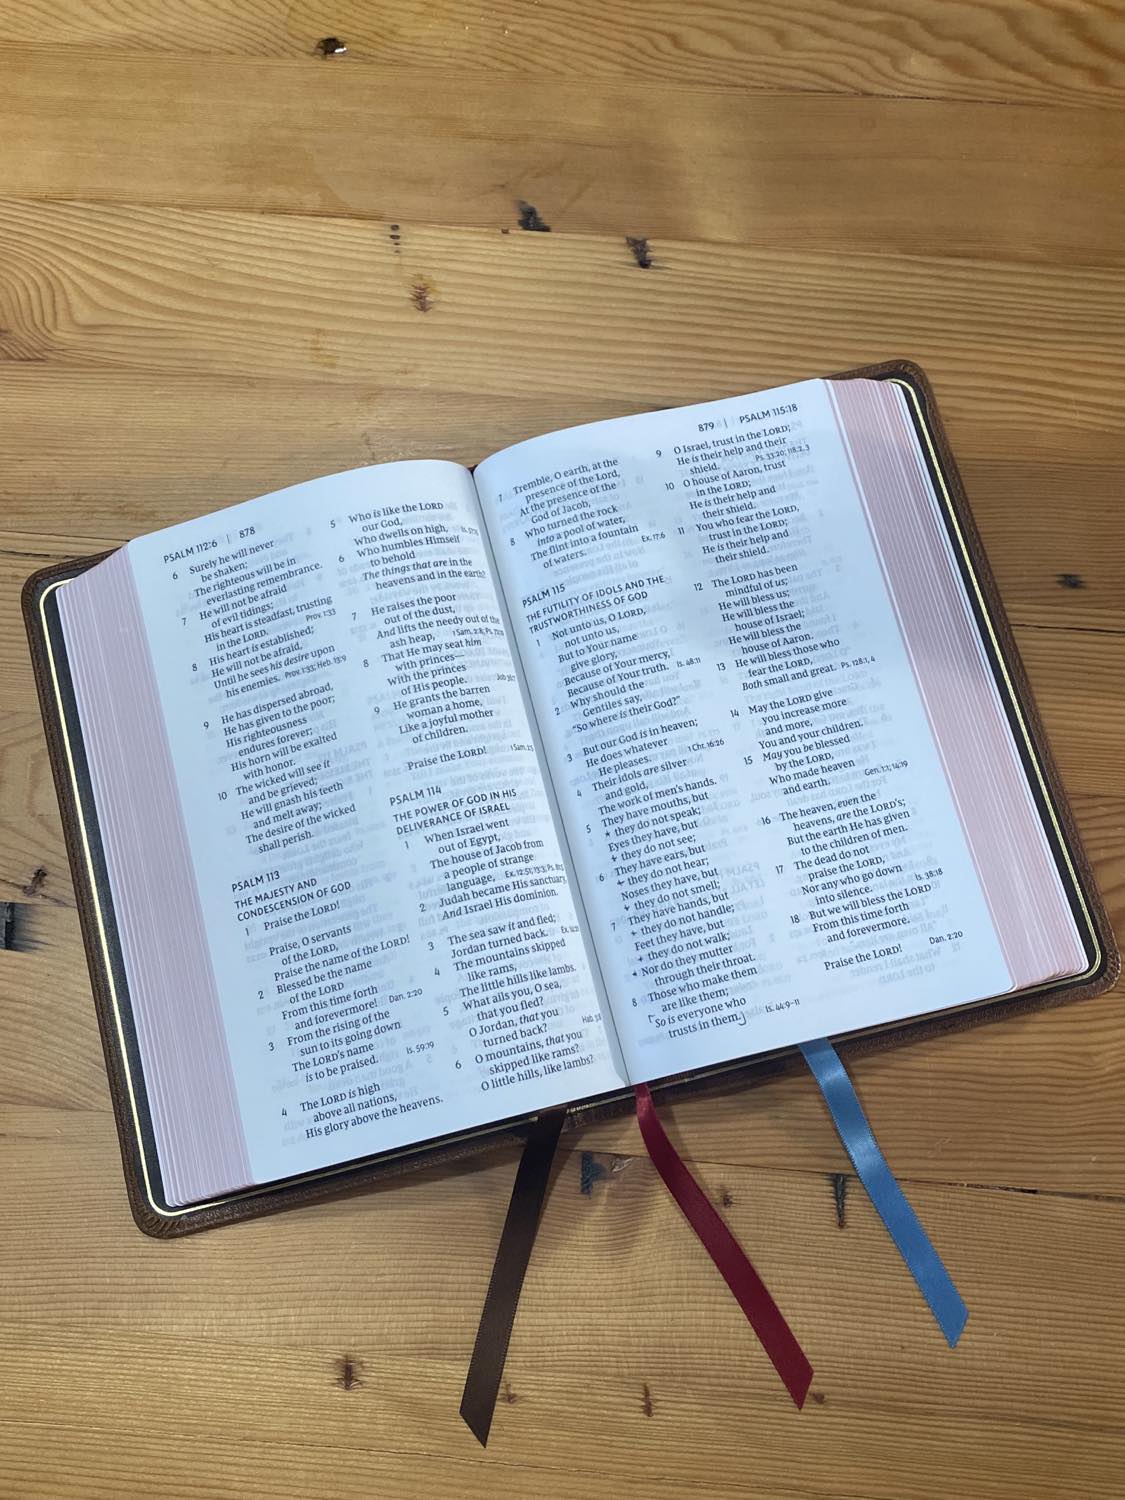 PSALM 112:6 | 878
6 Surely he will never
be shaken;
The righteous will be in
everlasting remembrance.
7 He will not be afraid
of evil tidings;
His heart is steadfast, trusting
in the LORD. Prov. 1:33
8 His heart is established;
He will not be afraid,
Until he sees his desire upon
his enemies. Prov. 1:33; Heb. 13:9
9 He has dispersed abroad,
He has given to the poor;
His righteousness
endures forever;
His horn will be exalted
with honor.
10 The wicked will see it
and be grieved;
He will gnash his teeth
and melt away;
The desire of the wicked
shall perish.
PSALM 113
THE MAJESTY AND
CONDESCENSION OF GOD
1 Praise the LORD!
Praise, O servants
of the LORD,
Praise the name of the LORD!
2 Blessed be the name
of the LORD
From this time forth
and forevermore! Dan. 2:20
3 From the rising of the
sun to its going down
The LORD's name
is to be praised. Is. 59:19
4 The LORD is high
above all nations,
His glory above the heavens.
5 Who is like the LORD
our God,
Who dwells on high,
6 Who humbles Himself
to behold
The things that are in the
heavens and in the earth?
7 He raises the poor
out of the dust,
And lifts the needy out of the
ash heap,
8 That He may seat him
with princes—
With the princes
of His people.
9 He grants the barren
woman a home,
Like a joyful mother
of children.
Praise the LORD!
PSALM 114
THE POWER OF GOD IN HIS
DELIVERANCE OF ISRAEL
1 When Israel went
out of Egypt,
The house of Jacob from
a people of strange
language,
2 Judah became His sanctuary,
And Israel His dominion.
3 The sea saw it and fled;
Jordan turned back.
4 The mountains skipped
like rams,
The little hills like lambs.
5 What ails you, O sea,
that you fled?
O Jordan, that you
turned back?
6 O mountains, that you
skipped like rams?
O little hills, like lambs?
879 | PSALM 115:18
7 Tremble, O earth, at the
presence of the Lord,
At the presence of the
God of Jacob,
8 Who turned the rock
into a pool of water,
The flint into a fountain
of waters. Ex. 17:6
PSALM 115
THE FUTILITY OF IDOLS AND THE
TRUSTWORTHINESS OF GOD
1 Not unto us, O LORD,
not unto us,
But to Your name
give glory,
Because of Your mercy,
Because of Your truth. Is. 48:11
2 Why should the
Gentiles say,
"So where is their God?"
3 But our God is in heaven;
He does whatever
He pleases. 1 Chr. 16:26
4 Their idols are silver
and gold,
The work of men's hands.
5 They have mouths, but
they do not speak;
Eyes they have, but
they do not see;
6 They have ears, but
they do not hear;
Noses they have, but
they do not smell;
7 They have hands, but
they do not handle;
Feet they have, but
they do not walk;
Nor do they mutter
through their throat.
8 Those who make them
are like them;
So is everyone who
trusts in them. Is. 44:9–11
9 O Israel, trust in the LORD;
He is their help and their
shield. Ps. 33:20; 118:2, 3
10 O house of Aaron, trust
in the LORD;
He is their help and
their shield.
11 You who fear the LORD,
trust in the LORD;
He is their help and
their shield.
12 The LORD has been
mindful of us;
He will bless us;
He will bless the
house of Israel;
He will bless the
house of Aaron.
13 He will bless those who
fear the LORD,
Both small and great. Ps. 128:1, 4
14 May the LORD give
you increase more
and more,
You and your children.
15 May you be blessed
by the LORD,
Who made heaven
and earth. Gen. 1:1; 14:19
16 The heaven, even the
heavens, are the LORD's;
But the earth He has given
to the children of men.
17 The dead do not
praise the LORD,
Nor any who go down
into silence. Is. 38:18
18 But we will bless the LORD
From this time forth
and forevermore.
Praise the LORD! Dan. 2:20